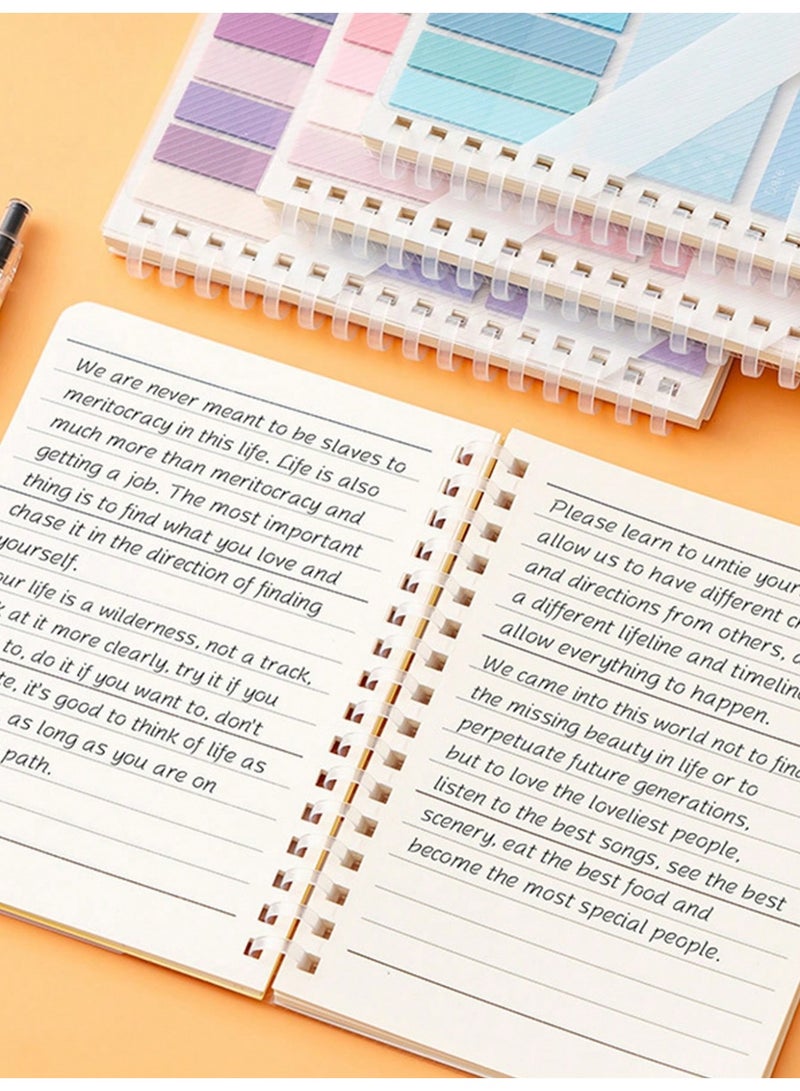 We are never meant to be slaves to
meritocracy in this life. Life is also
much more than meritocracy and
getting a job. The most important
thing is to find what you love and
chase it in the direction of finding
yourself.
life is a wilderness, not a track,
at it more clearly, try it if you
to, do it if you want to, don't
it's good to think of life as
as long as you are on
path.
Please learn to untie your
allow us to have different
and directions from others,
a different lifeline and
allow everything to happen.
We came into this world not to
the missing beauty in life or to
perpetuate future generations,
but to love the loveliest people,
listen to the best songs, see the best
scenery, eat the best food and
become the most special people.